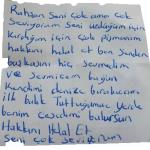 Rahşan Seni çok ama çok
seviyorum Seni üzdüğüm için
kırdığım için çok pişmanım
hakkını helal et ben senden
başkasını hiç sevmedim
ve sevmicem bugün
Kendimi denize bırakıcam
ilk bilek Tuttuğumuz yerde
benim cesedimi bulursun
Hakkını Helal Et
Seni çok seviyorum